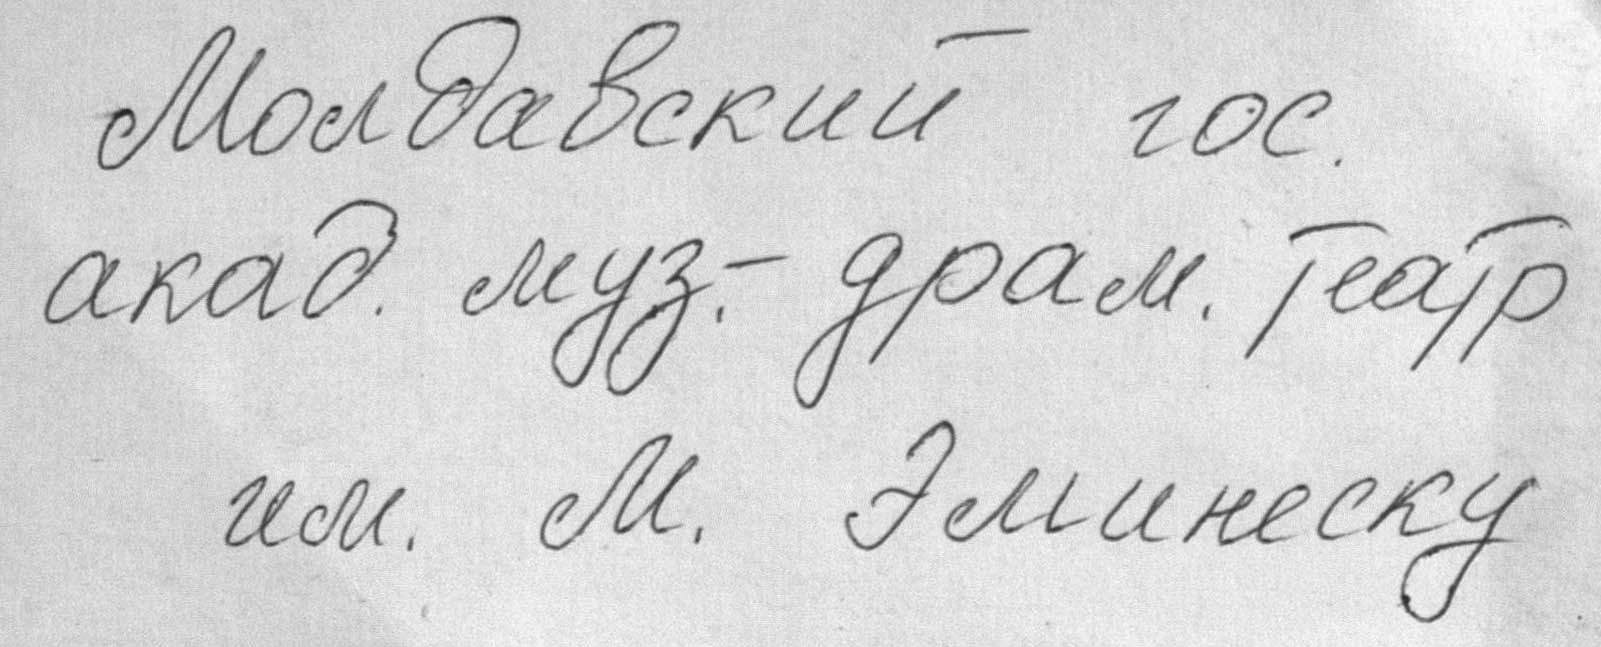 Молдавский гос.
акад. муз.- драм. театр
им. М. Эминеску